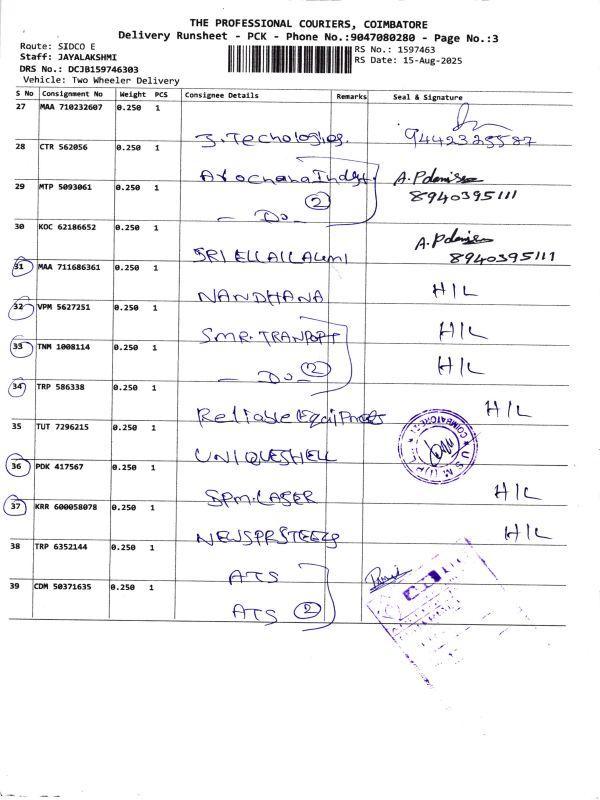 THE PROFESSIONAL COURIERS, COIMBATORE
Delivery Runsheet - PCK - Phone No.:9047080280 - Page No.:3
Route: SIDCO E
RS No.: 1597463
Staff: JAYALAKSHMI
RS Date: 15-Aug-2025
DRS No.: DCJB159746303
Vehicle: Two Wheeler Delivery
S No Consignment No Weight PCS Consignee Details Remarks Seal & Signature
27 MAA 710232607 0.250 1
J. Techologies. 9442325587
28 CTR 562056 0.250 1
Arochana Indst. A.P
29 MTP 5093061 0.250 1
8940395111
- Do - 2
30 KOC 62186652 0.250 1
A.P
SRI 8940395111
31 MAA 711686361 0.250 1
NANDHANA H/L
32 VPM 5627251 0.250 1
SMR. TRANPORT H/L
33 TNM 1008114 0.250 1
H/L
- Do - 2
34 TRP 586338 0.250 1
Reliable H/L
35 TUT 7296215 0.250 1
COIMBATORE
U S M (I) P
UNIQUESHELL
36 PDK 417567 0.250 1
SPM. LASER H/L
37 KRR 600058078 0.250 1
H/L
38 TRP 6352144 0.250 1
ATS
39 CDM 50371635 0.250 1
ATS 2